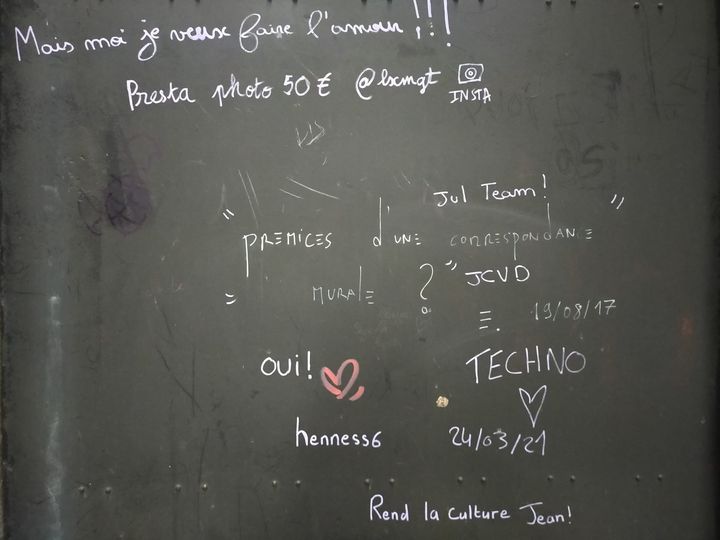 Mais moi je veux faire l'amour !!!
Presta photo 50 € @lxmgt
INSTA
Jul Team!
" PREMICES d'UNE CORRESPONDANCE "
MURALE ? "
JCVD
E. 19/08/17
OUI!
TECHNO
henness6
24/03/21
Rend la culture Jean!